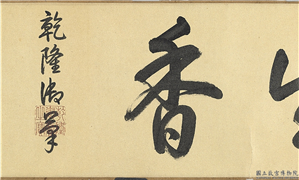 香
乾隆御筆
國立故宮博物院